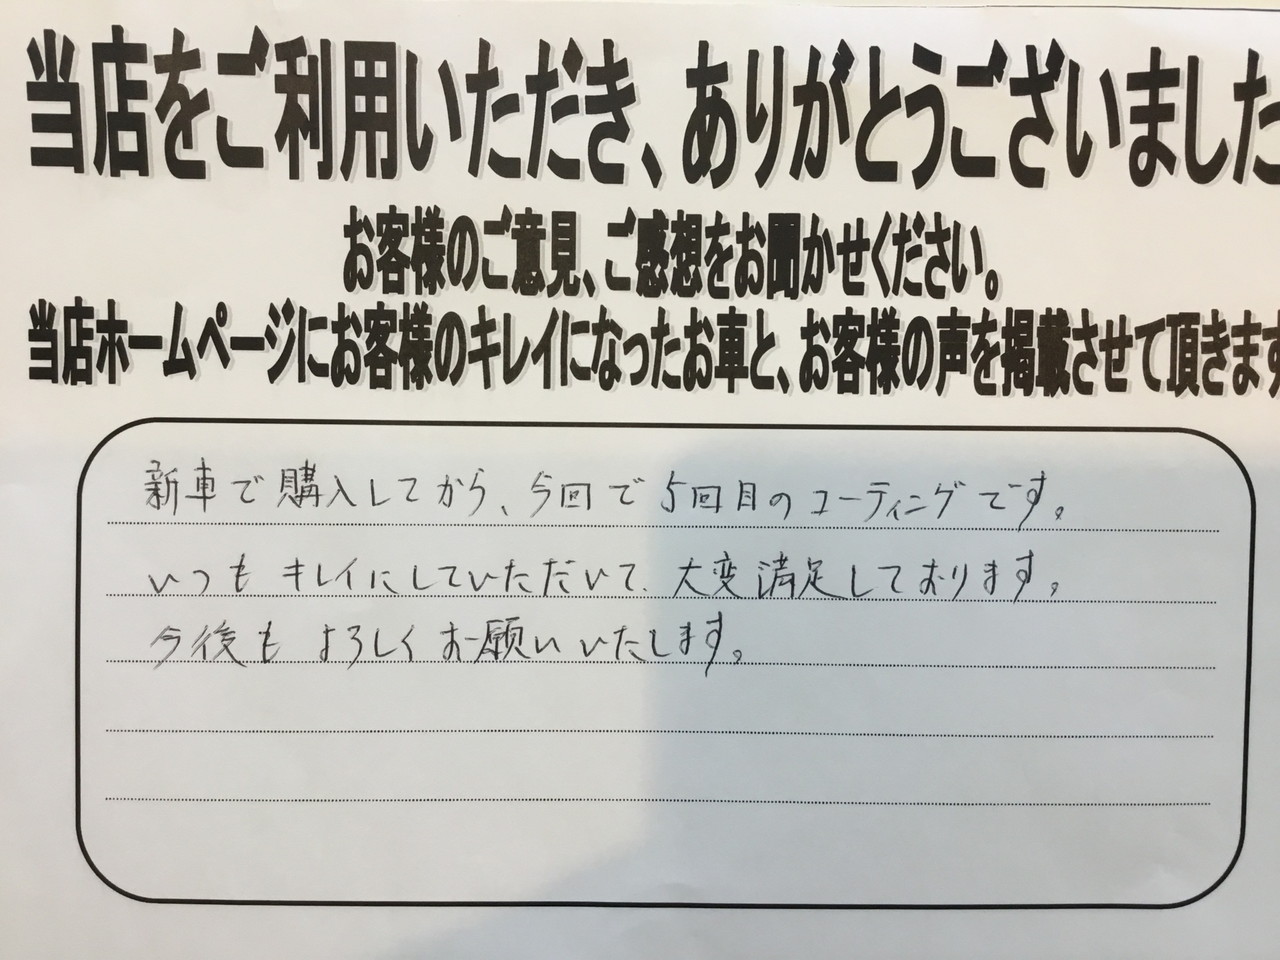 当店をご利用いただき、ありがとうございました
お客様のご意見、ご感想をお聞かせください。
当店ホームページにお客様のキレイになったお車と、お客様の声を掲載させて頂きます
新車で購入してから、今回で5回目のコーティングです。
いつもキレイにしていただいて、大変満足しております。
今後もよろしくお願いいたします。